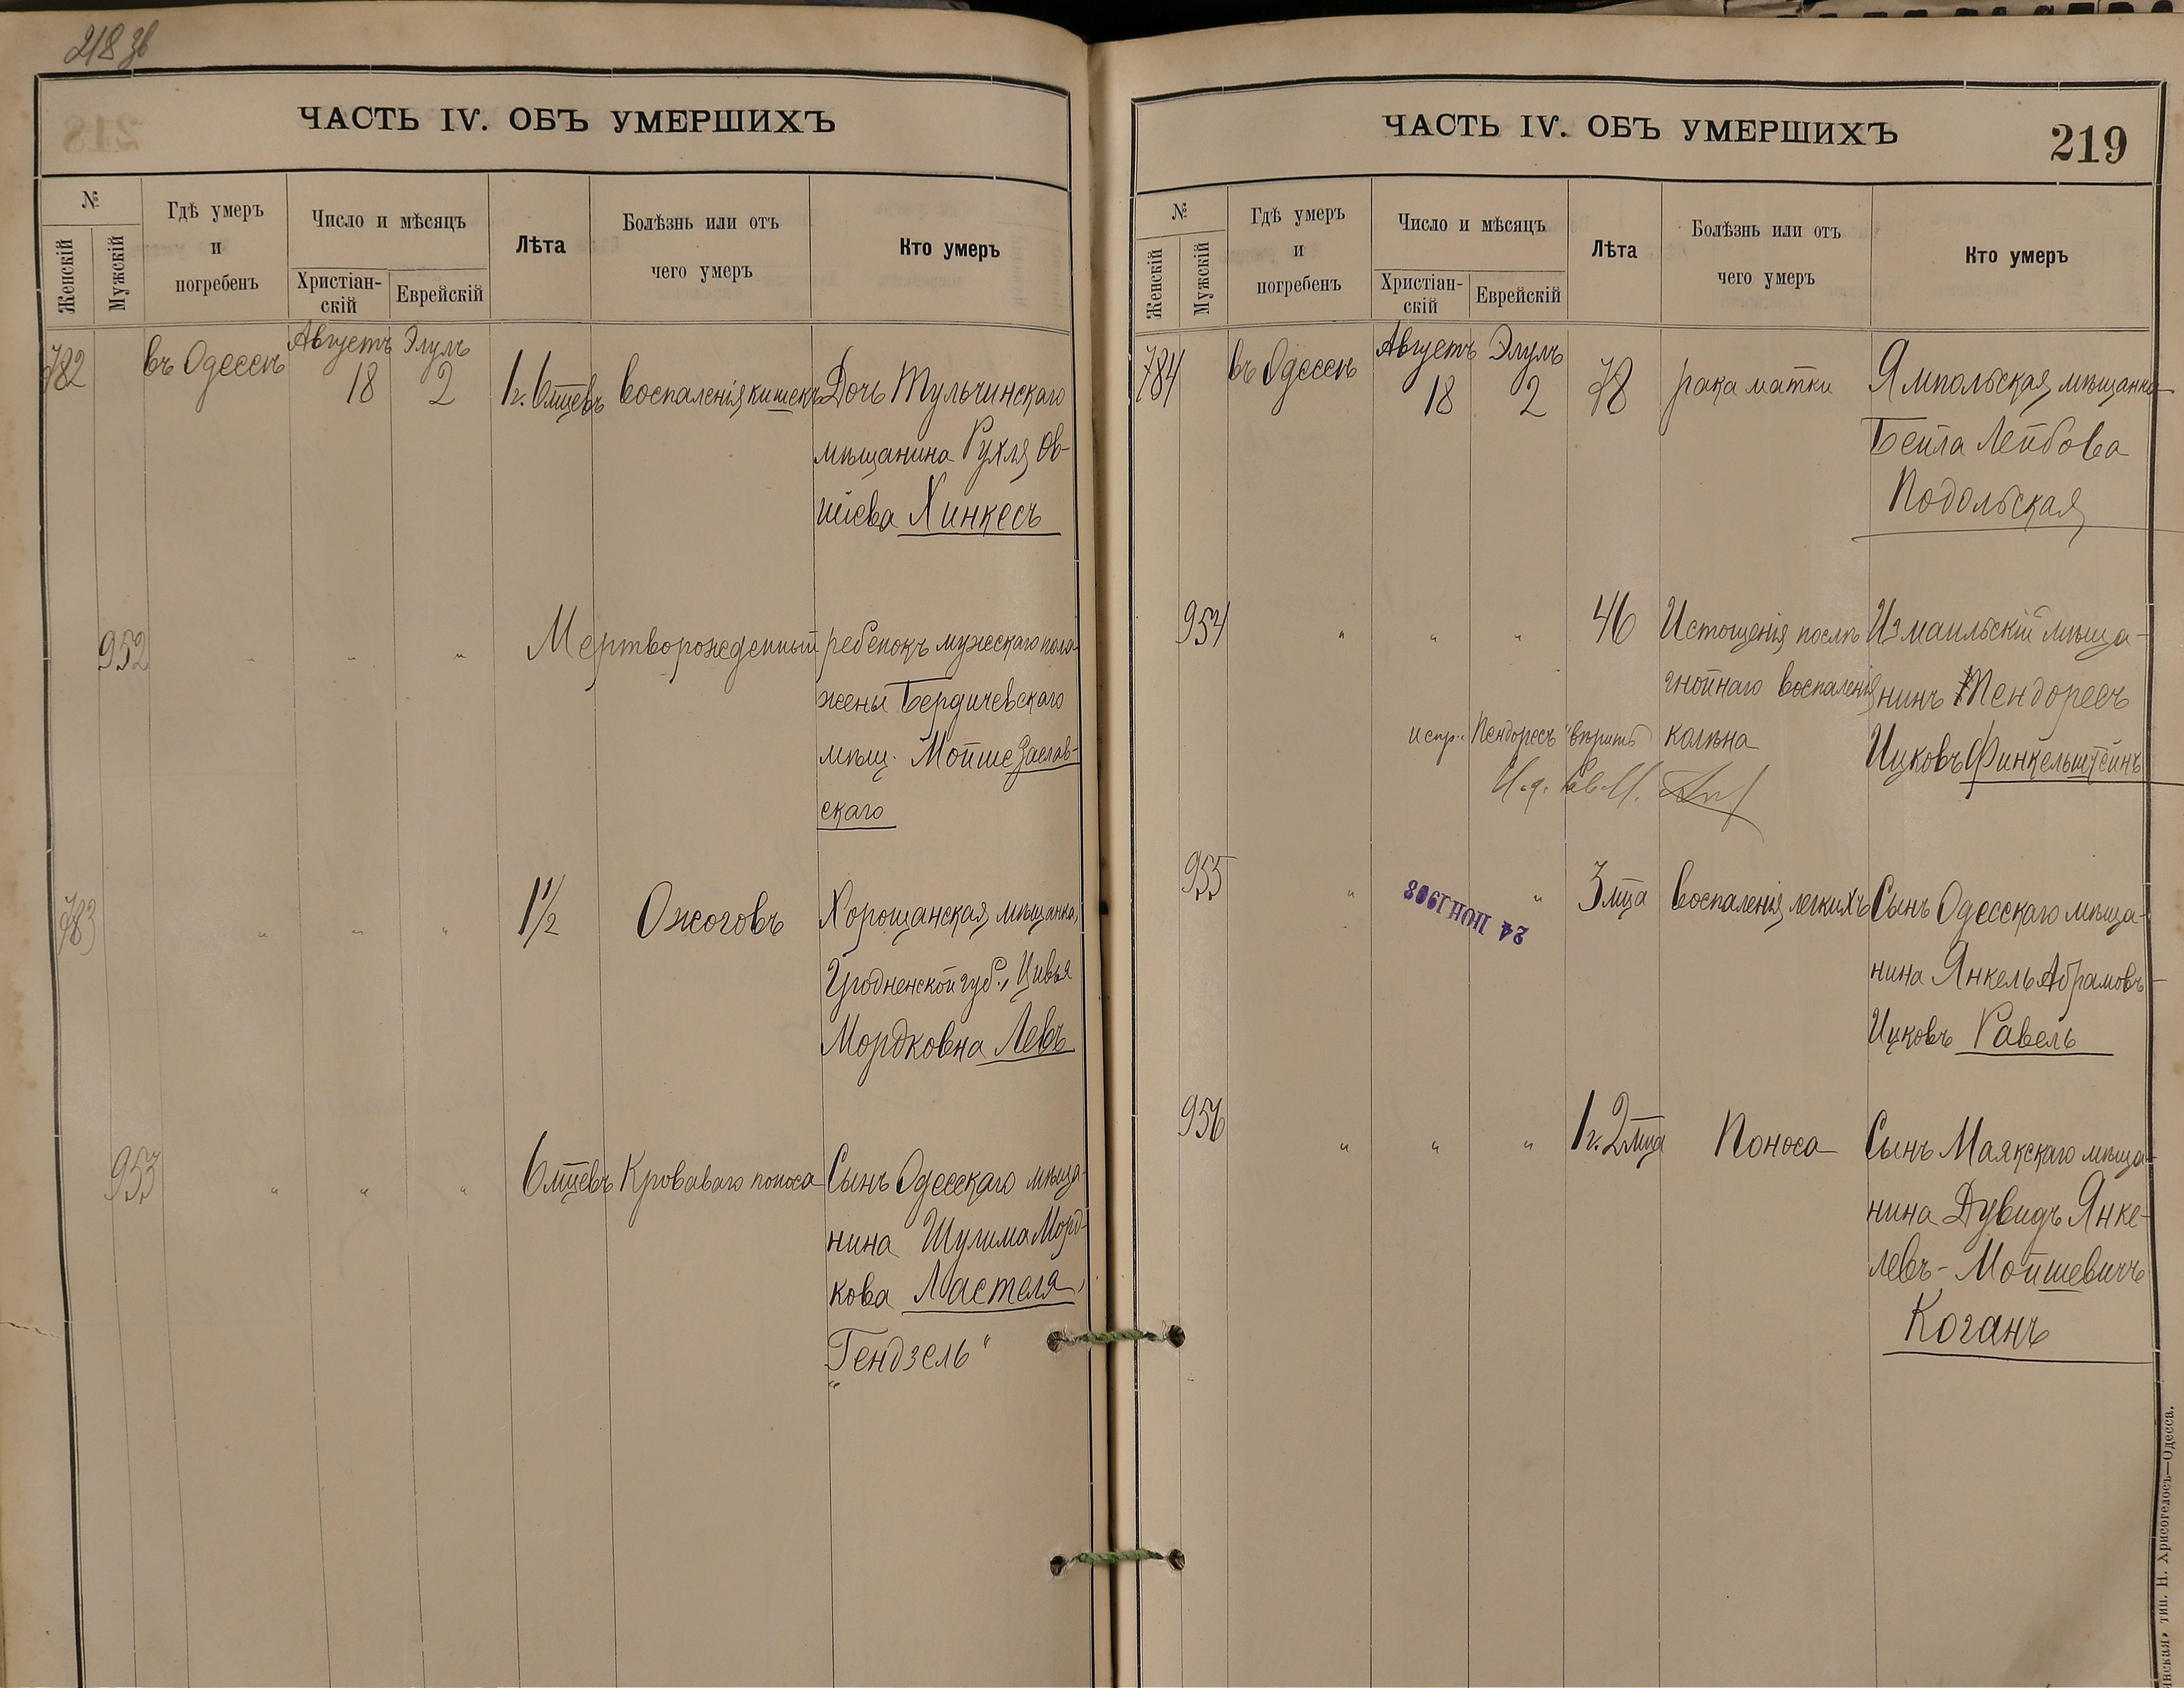 218 зв
ЧАСТЬ IV. ОБЪ УМЕРШИХЪ
№
Женскій
Мужскій
Гдѣ умеръ
и
погребенъ
Число и мѣсяцъ
Христіан-
скій
Еврейскій
Лѣта
Болѣзнь или отъ
чего умеръ
Кто умеръ
782 въ Одессѣ Августъ 18 Элулъ 2 1 г. 6 мцевъ воспаленія кишекъ Дочь Тульчинскаго
мѣщанина Рухля Ов-
шіева Хинкесъ
952 " " " Мертворожденный ребенокъ мужескаго пола
жены Бердичевскаго
мѣщ. Мойше Заслав-
скаго
783 " " " 1 1/2 Ожоговъ Хорощанская мѣщанка,
Гродненской губ., Цивья
Мордковна Левъ
953 " " " 6 мцевъ Кроваваго поноса Сынъ Одесскаго мѣща-
нина Шулима Морд-
кова Мастеля,
"Гендзель"
ЧАСТЬ IV. ОБЪ УМЕРШИХЪ
219
№
Женскій
Мужскій
Гдѣ умеръ
и
погребенъ
Число и мѣсяцъ
Христіан-
скій
Еврейскій
Лѣта
Болѣзнь или отъ
чего умеръ
Кто умеръ
784 въ Одессѣ Августъ 18 Элулъ 2 78 рака матки Ямпольская мѣщанка
Бейла Лейбова
Подольская
954 " " " 46 Истощенія послѣ Измаильскій мѣща-
гнойнаго воспаленія нинъ Мендоресъ
испр. "Мендоресъ" вѣрить колѣна Ицковъ Финкельштейнъ
И. д. Рав.
955 " " 3 мца воспаленія легкихъ Сынъ Одесскаго мѣща-
24 ІЮН 1908
нина Янкель Абрамовъ-
Ицковъ Равель
956 " " " 1 г. 2 мца Поноса Сынъ Маякскаго мѣща-
нина Дувидъ Янке-
левъ-Мойшевичъ
Коганъ
тип. Н. Хрисогелосъ—Одесса.